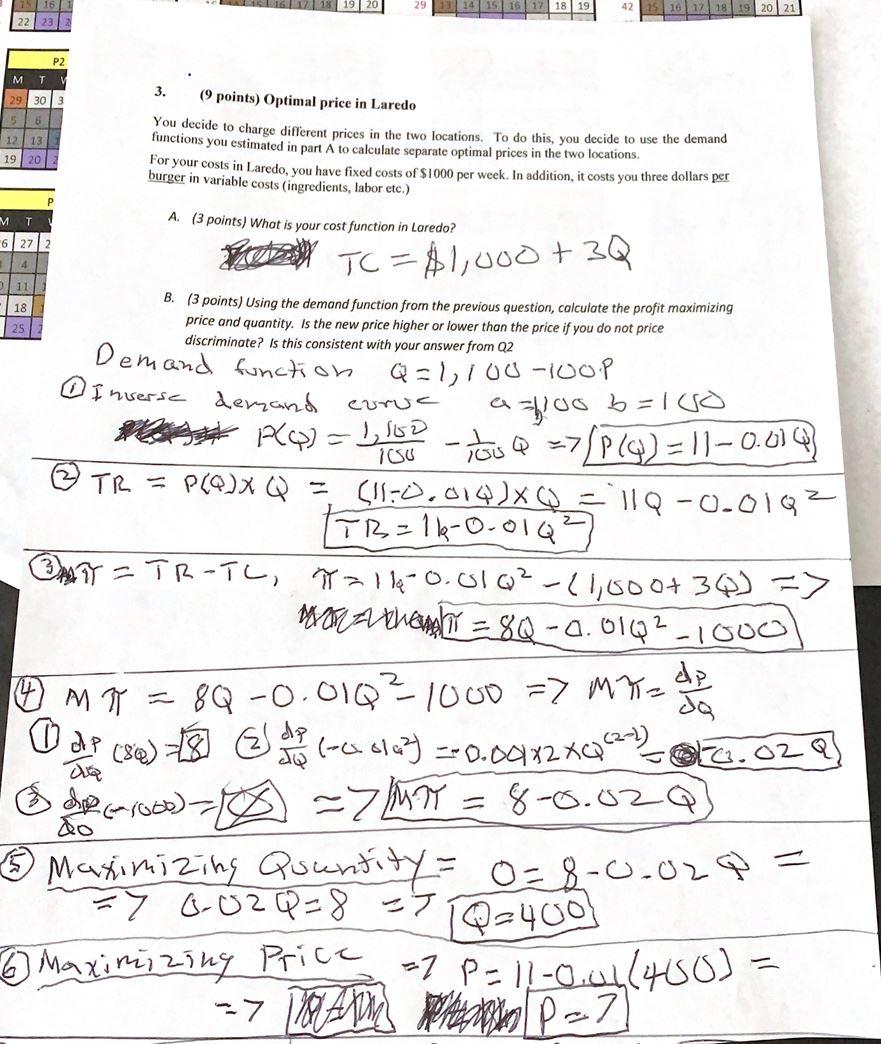 15 16 1
22 23 2
15 16 17 18 19 20
29 13 14 15 16 17 18 19
42 15 16 17 18 19 20 21
P2
M T
29 30 3
5 6
12 13
19 20 2
P
M T
6 27 2
4
11
18 1
25 2
3. (9 points) Optimal price in Laredo
You decide to charge different prices in the two locations. To do this, you decide to use the demand
functions you estimated in part A to calculate separate optimal prices in the two locations.
For your costs in Laredo, you have fixed costs of $1000 per week. In addition, it costs you three dollars per
burger in variable costs (ingredients, labor etc.)
A. (3 points) What is your cost function in Laredo?
TC = $1,000 + 3Q
B. (3 points) Using the demand function from the previous question, calculate the profit maximizing
price and quantity. Is the new price higher or lower than the price if you do not price
discriminate? Is this consistent with your answer from Q2
Demand function Q = 1,100 - 100P
① Inverse demand curve a = 1,100 b = 100
P(Q) = 1,100/100 - 1/100 Q => P(Q) = 11 - 0.01Q
② TR = P(Q) x Q = (11-0.01Q) x Q = 11Q - 0.01Q²
TR = 11Q - 0.01Q²
③ π = TR - TC, π = 11Q - 0.01Q² - (1,000 + 3Q) =>
π = 8Q - 0.01Q² - 1000
④ Mπ = 8Q - 0.01Q² - 1000 => Mπ = dp/dQ
① dp/dQ (8Q) = 8 ② dp/dQ (-0.01Q²) = -0.001 x 2 x Q^(2-1) = -0.02Q
③ dp/dQ (-1000) = => Mπ = 8 - 0.02Q
⑤ Maximizing Quantity = 0 = 8 - 0.02Q =
=> 0.02Q = 8 => Q = 400
⑥ Maximizing Price => P = 11 - 0.01(400) =
=> P = 7